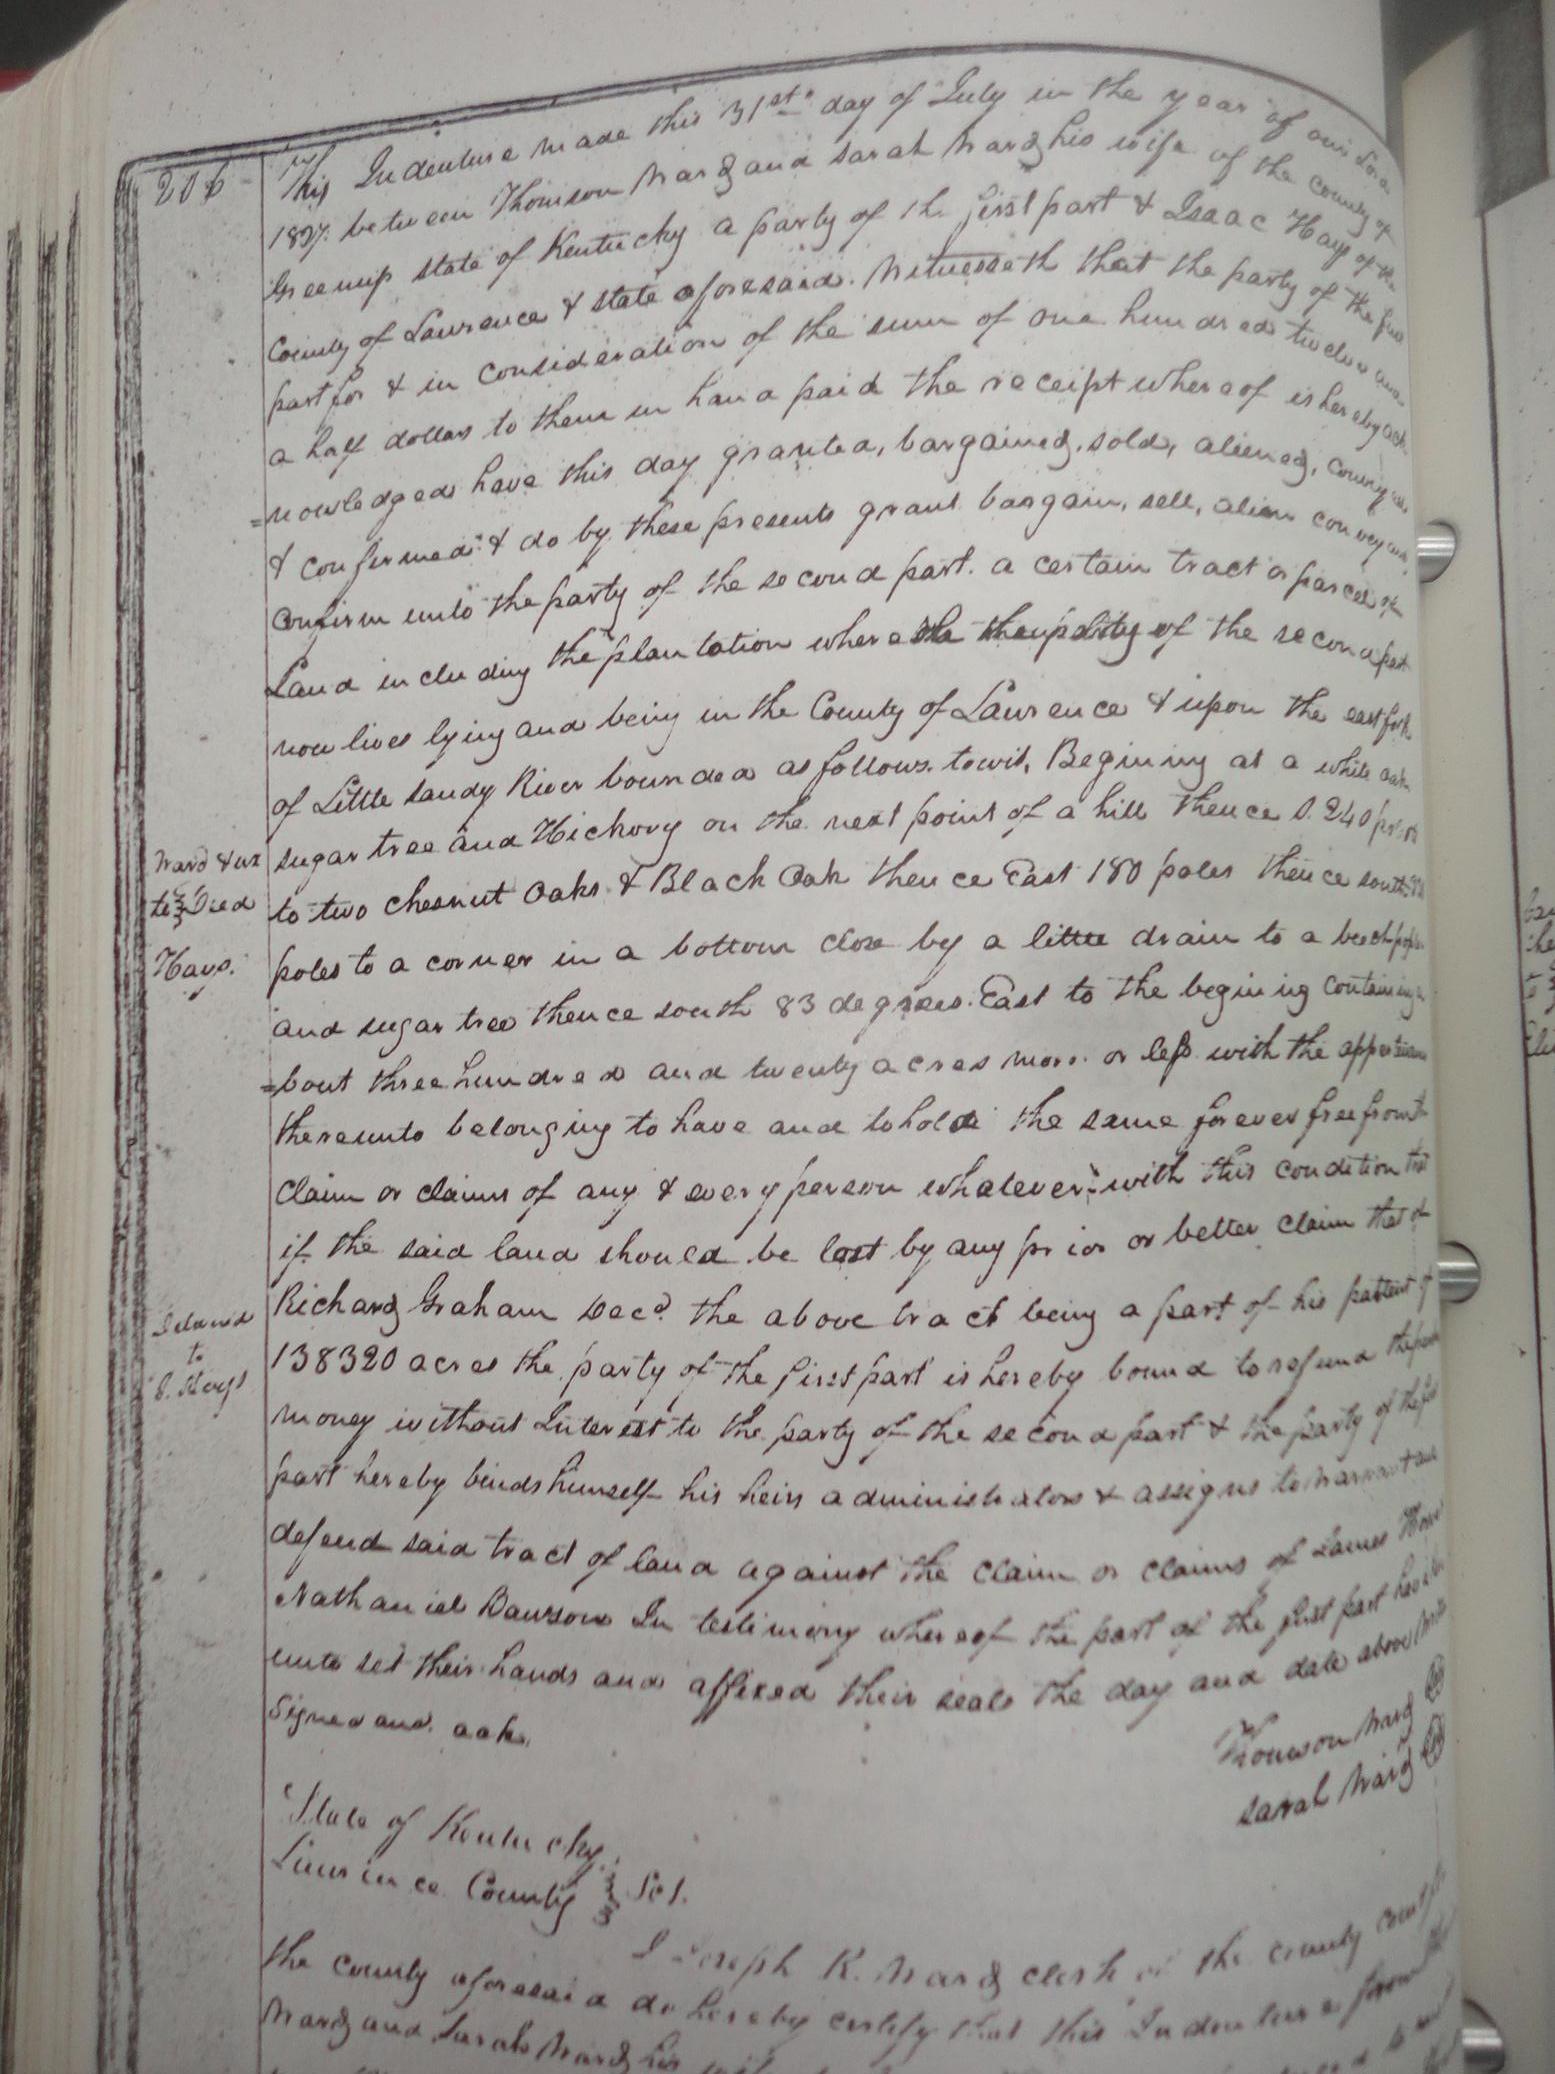 206
This Indenture made this 31st day of July in the year of our Lord
1827. between Thomson Ward and Sarah Ward his wife of the county of
Greenup state of Kentucky a party of the first part & Isaac Hays of the
County of Lawrence & state aforesaid. Witnesseth that the party of the first
part for & in consideration of the sum of one hundred twelve and
a half dollars to them in hand paid the receipt whereof is hereby ack
=nowledged have this day granted, bargained, sold, aliened, conveyed
& confirmed & do by these presents grant bargain, sell, alien convey and
confirm unto the party of the second part. a certain tract or parcel of
Land including the plantation where the party of the second part
now lives lying and being in the County of Lawrence & upon the east fork
of Little Sandy River bounded as follows. towit, Begining at a white oak
sugar tree and Hickory on the next point of a hill thence S. 240 poles
Ward & ux
to two chesnut oaks & Black Oak thence East 180 poles thence south
to Deed
poles to a corner in a bottom close by a little drain to a beech poplar
Hays.
and sugar tree thence south 83 degrees. East to the begining containing a
=bout three hundred and twenty acres more or less with the appertainan
thereunto belonging to have and to hold the same forever free from the
claim or claims of any & every person whatever: with this condition that
if the said land should be lost by any prior or better claim that of
Richard Graham Decd. the above tract being a part of his patent of
Deland
to
I. Hays
138320 acres the party of the first part is hereby bound to refund the
money without Interest to the party of the second part & the party of the first
part hereby binds himself his heirs administrators & assigns to warrant and
defend said tract of land against the claim or claims of James
Nathaniel Dawson In testimony whereof the part of the first part have
unto set their hands and affixed their seals the day and date above
Signed and ack.
Thomson Ward
Sarah Ward
State of Kentucky
Lawrence County Sct.
I Joseph R. Ward clerk of the county court
the county aforesaid do hereby certify that this Indenture from
Ward and Sarah Ward his